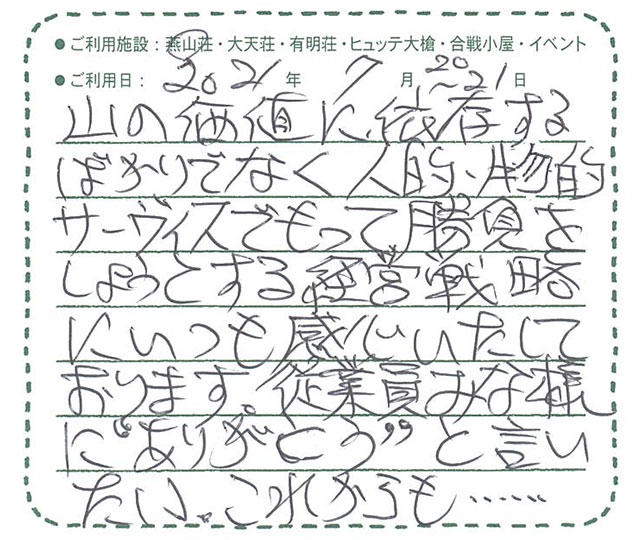 ●ご利用施設：燕山荘・大天荘・有明荘・ヒュッテ大槍・合戦小屋・イベント
●ご利用日：2021年7月20~21日
山の価値に依存する
ばかりでなく人的、物的
サーヴィスでもって勝負を
しようとする経営戦略
にいつも感心いたして
おります。従業員みな様
に“ありがとう”と言い
たい。これからも……